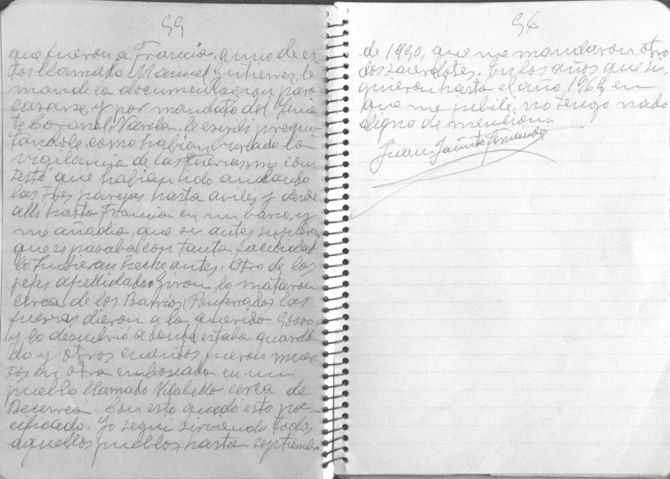 55
que fueron a Francia, a uno de es-
tos llamado Manuel Gutierrez, le
mande la documentacion para
casarse, y por mandato del Tenien-
te Coronel Varela le escribi pregun-
tandole como habian burlado la
vigilancia de las fuerzas, me con-
testo que habian ido andando
las tres parejas hasta Aviles y desde
alli hasta Francia en un barco, y
me añadia, que si antes supiera
que se pasaba con tanta facilidad
lo hubieran hecho antes. Otro de los
jefes apellidado Giron lo mataron
cerca de los Barrios, Ponferrada, las
fuerzas dieron a la querida
y lo descubrió a donde estaba guarda-
do y otros cuantos fueron muer-
tos en otra emboscada en un
pueblo llamado cerca de
Becerrea. Con esto quedó esto pa-
cificado. Yo segui sirviendo todos
aquellos pueblos hasta septiembre
56
de 1950, que me mandaron otro
dos sacerdotes. En los años que si-
guieron hasta el año, 1969 en
que me jubile no tengo nada
digno de mencion.
Juan Jañito Fernandez